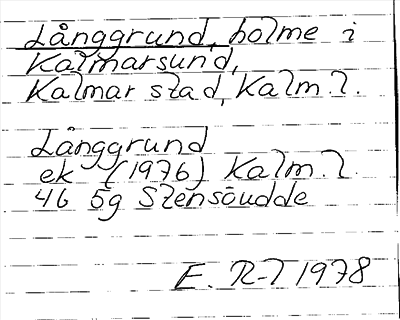 Långgrund, holme i
Kalmarsund,
Kalmar stad, Kalm. l.
Långgrund
ek (1976) Kalm. l.
4G 5g Stensöudde
E. R-l 1978